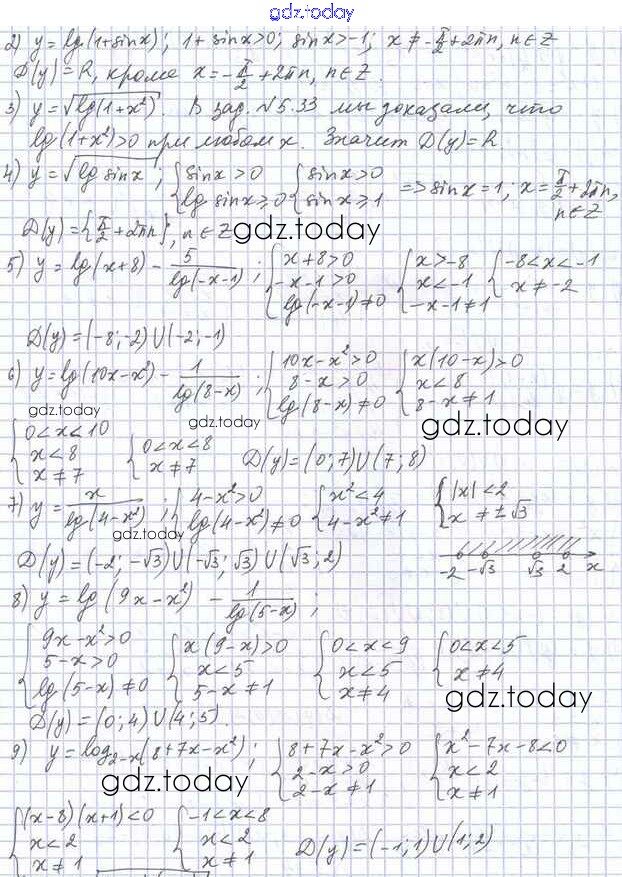 gdz.today
2) y = lg(1+sinx); 1+sinx>0; sinx>-1; x ≠ -π/2+2πn, n∈Z
D(y)=R, кроме x = -π/2+2πn, n∈Z.
3) y=√lg(1+x²). В зад. №5.33 мы доказали, что
lg(1+x²)>0 при любом x. Значит D(y)=R
4) y=√lg sinx; { sinx>0 lg sinx≥0 { sinx>0 sinx≥1 => sinx=1; x=π/2+2πn, n∈Z
D(y)={π/2+2πn}, n∈Z gdz.today
5) y=lg(x+8) - 5/lg(-x-1); { x+8>0 -x-1>0 lg(-x-1)≠0 { x>-8 x<-1 -x-1≠1 { -8<x<-1 x≠-2
D(y)=(-8;-2)U(-2;-1)
6) y=lg(10x-x²) - 1/lg(8-x); { 10x-x²>0 8-x>0 lg(8-x)≠0 { x(10-x)>0 x<8 8-x≠1
gdz.today gdz.today
{ 0<x<10 x<8 x≠7 { 0<x<8 x≠7 D(y)=(0;7)U(7;8)
7) y=x/lg(4-x²); { 4-x²>0 lg(4-x²)≠0 { x²<4 4-x²≠1 { |x|<2 x≠±√3
D(y)=(-2;-√3)U(-√3;√3)U(√3;2)
-2 -√3 √3 2 x
8) y=lg(9x-x²) - 1/lg(5-x);
{ 9x-x²>0 5-x>0 lg(5-x)≠0 { x(9-x)>0 x<5 5-x≠1 { 0<x<9 x<5 x≠4 { 0<x<5 x≠4
gdz.today
D(y)=(0;4)U(4;5).
9) y=log₂₋ₓ(8+7x-x²); { 8+7x-x²>0 2-x>0 2-x≠1 { x²-7x-8<0 x<2 x≠1
gdz.today
{ (x-8)(x+1)<0 x<2 x≠1 { -1<x<8 x<2 x≠1 D(y)=(-1;1)U(1;2)